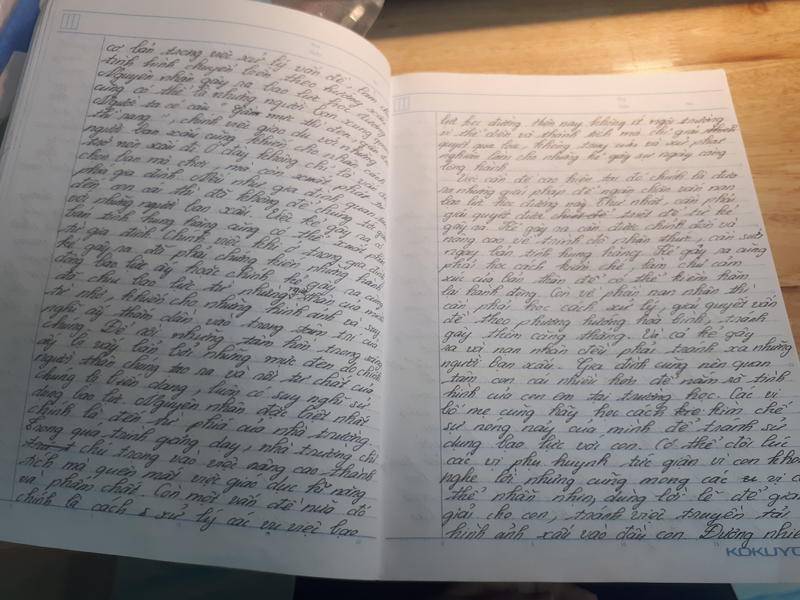 cơ bản trong việc xử lý vấn đề, làm cho
tình hình chuyển biến theo hướng
Nguyên nhân gây ra bạo lực học đường
cũng có thể là những người bạn xung quanh.
Người ta có câu "Gần mực thì đen, gần đèn
thì rạng", chính việc giao du với những
người bạn xấu cũng khiến cho nhân cách
trở nên xấu đi. Ở đây không chỉ là vấn đề
chọn bạn mà chơi, mà còn xuất phát từ
phía gia đình. Nếu như gia đình quan tâm
đến con cái thì đã không để chúng tiếp xúc
với những người bạn xấu. Việc kẻ gây ra có
bản tính hung hăng cũng có thể xuất phát
từ gia đình. Chính việc khi ở trong gia đình
kẻ gây ra đã phải chứng kiến những hành
động bạo lực ấy hoặc chính kẻ gây ra cũng
đã chịu bạo lực từ những người thân của mình
từ nhỏ, khiến cho những hình ảnh và suy
nghĩ ấy thấm dần vào trong tâm trí của
chúng. Để rồi những tâm hồn trong sáng
ấy bị vấy bẩn bởi những mực đen do chính
người thân chúng tạo ra và rồi tư chất của
chúng bị biến dạng, luôn có suy nghĩ sử
dụng bạo lực. Nguyên nhân đặc biệt nhất
chính là đến từ phía của nhà trường.
Trong quá trình giảng dạy, nhà trường chỉ
chú trọng vào việc nâng cao thành
tích mà quên mất việc giáo dục kỹ năng
và phẩm chất. Còn một vấn đề nữa đó
chính là cách xử lý các vụ việc bạo
lực học đường. Hiện nay không ít ngôi trường
vì thể diện và thành tích mà chỉ giải
quyết qua loa, không truy cứu và xử phạt
nghiêm làm cho những kẻ gây sự ngày càng
lộng hành.
Việc cần đề cao hiện tại đó chính là đưa
ra những giải pháp để ngăn chặn vấn nạn
bạo lực học đường này. Thứ nhất, cần phải
giải quyết được triệt để từ kẻ
gây ra. Kẻ gây ra cần được chỉnh đốn và
nâng cao về trình độ nhận thức, cần sửa
ngay bản tính hung hăng. Kẻ gây ra cũng
phải học cách kiềm chế, làm chủ cảm
xúc của bản thân để có thể kiềm hãm
lại hành động. Còn về phần nạn nhân thì
cần phải học cách xử lý, giải quyết vấn
đề theo phương hướng hoà bình, tránh
gây thêm căng thẳng. Và cả kẻ gây
ra và nạn nhân đều phải tránh xa những
người bạn xấu. Gia đình cũng nên quan
tâm con cái nhiều hơn để nắm rõ tình
hình của con em tại trường học, các vị
bố mẹ cũng hãy học cách kìm chế
sự nóng nảy của mình để tránh sử
dụng bạo lực với con. Có thể đôi lúc
các vị phụ huynh tức giận vì con không
nghe lời nhưng cũng mong các vị có
thể nhẫn nhịn, dùng lời lẽ để giảng
giải cho con, tránh việc truyền tải
hình ảnh xấu vào đầu con. Đương nhiên
KOKUYO